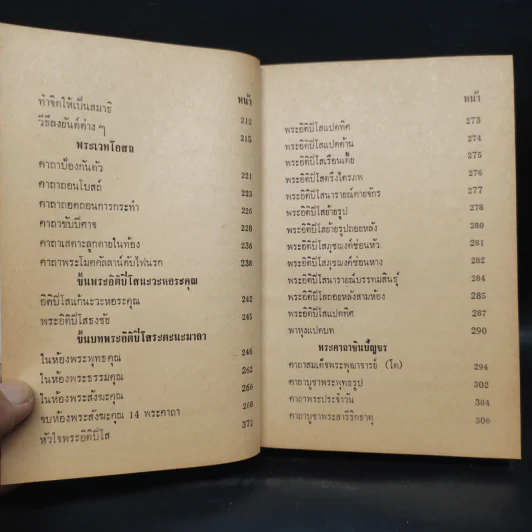 หน้า
ทำจิตให้เป็นสมาธิ 212
วิธีลงยันต์ต่าง ๆ 215
พระเวทโอสถ
คาถาป้องกันตัว 221
คาถาถอนโบสถ์ 223
คาถาถอดถอนการกระทำ 226
คาถาขับปีศาจ 228
คาถาเสดาะลูกตายในท้อง 236
คาถาพระโมคคัลลาน์ดับไฟนรก 238
ขึ้นพระอิติปิโสนะวะหอระคุณ
อิติปิโสแก้นะวะหอระคุณ 242
พระอิติปิโสธงชัย 245
ขึ้นบทพระอิติปิโสระตะนะมาลา
ในห้องพระพุทธคุณ 246
ในห้องพระธรรมคุณ 262
ในห้องพระสังฆะคุณ 266
จบห้องพระสังฆะคุณ 14 พระคาถา 268
หัวใจพระอิติปิโส 372
หน้า
พระอิติปิโสแปดทิศ 273
พระอิติปิโสแปดด้าน 274
พระอิติปิโสเรือนเตี้ย 275
พระอิติปิโสตรึงไตรภพ 276
พระอิติปิโสนารายณ์คายจักร 277
พระอิติปิโสย้ายรูป 278
พระอิติปิโสย้ายรูปถอยหลัง 280
พระอิติปิโสภุชฌงค์ซ่อนหัว 281
พระอิติปิโสภุชฌงค์ซ่อนหาง 282
พระอิติปิโสนารายณ์บรรทมสินธุ์ 284
พระอิติปิโสถอยหลังสามห้อง 285
พระอิติปิโสแปดทิศ 287
พาหุงแปดบท 290
พระคาถาชินบัญชร
คาถาสมเด็จพระพุฒาจารย์ (โต) 294
คาถาบูชาพระพุทธรูป 302
คาถาพระประจำวัน 304
คาถาบูชาพระสารีริกธาตุ 306